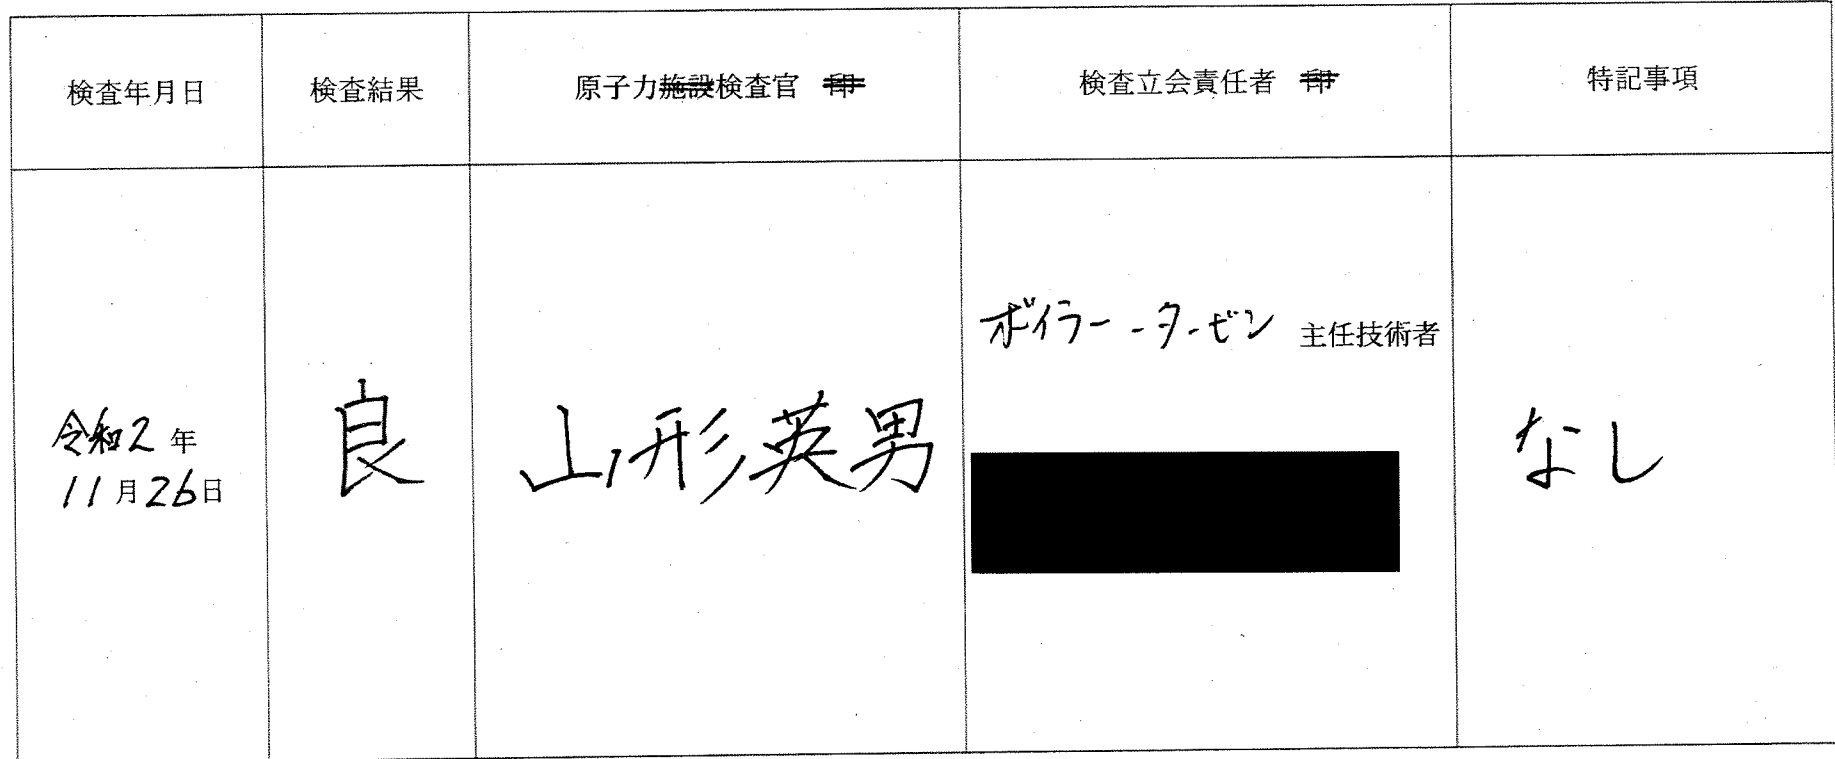 検査年月日
検査結果
原子力施設検査官 印
検査立会責任者 印
特記事項
令和2年
11月26日
良
山形英男
ボイラー・タービン 主任技術者
なし